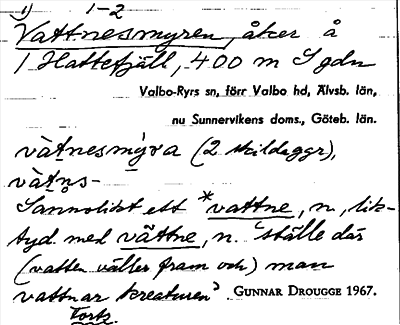 1) 1-2
Vattnesmyren, åker å
1 Hattefjäll, 400 m S gdn
Valbo-Ryrs sn, förr Valbo hd, Älvsb. län,
nu Sunnervikens doms., Göteb. län.
vàtnesmýra (2 skildaggr),
vàtn̥s-
Sannolikt ett *vattne, n., lik-
tyd. med vättne, n. 'ställe där
(vatten väller fram och) man
vattnar kreaturen'. GUNNAR DROUGGE 1967.
Forts.